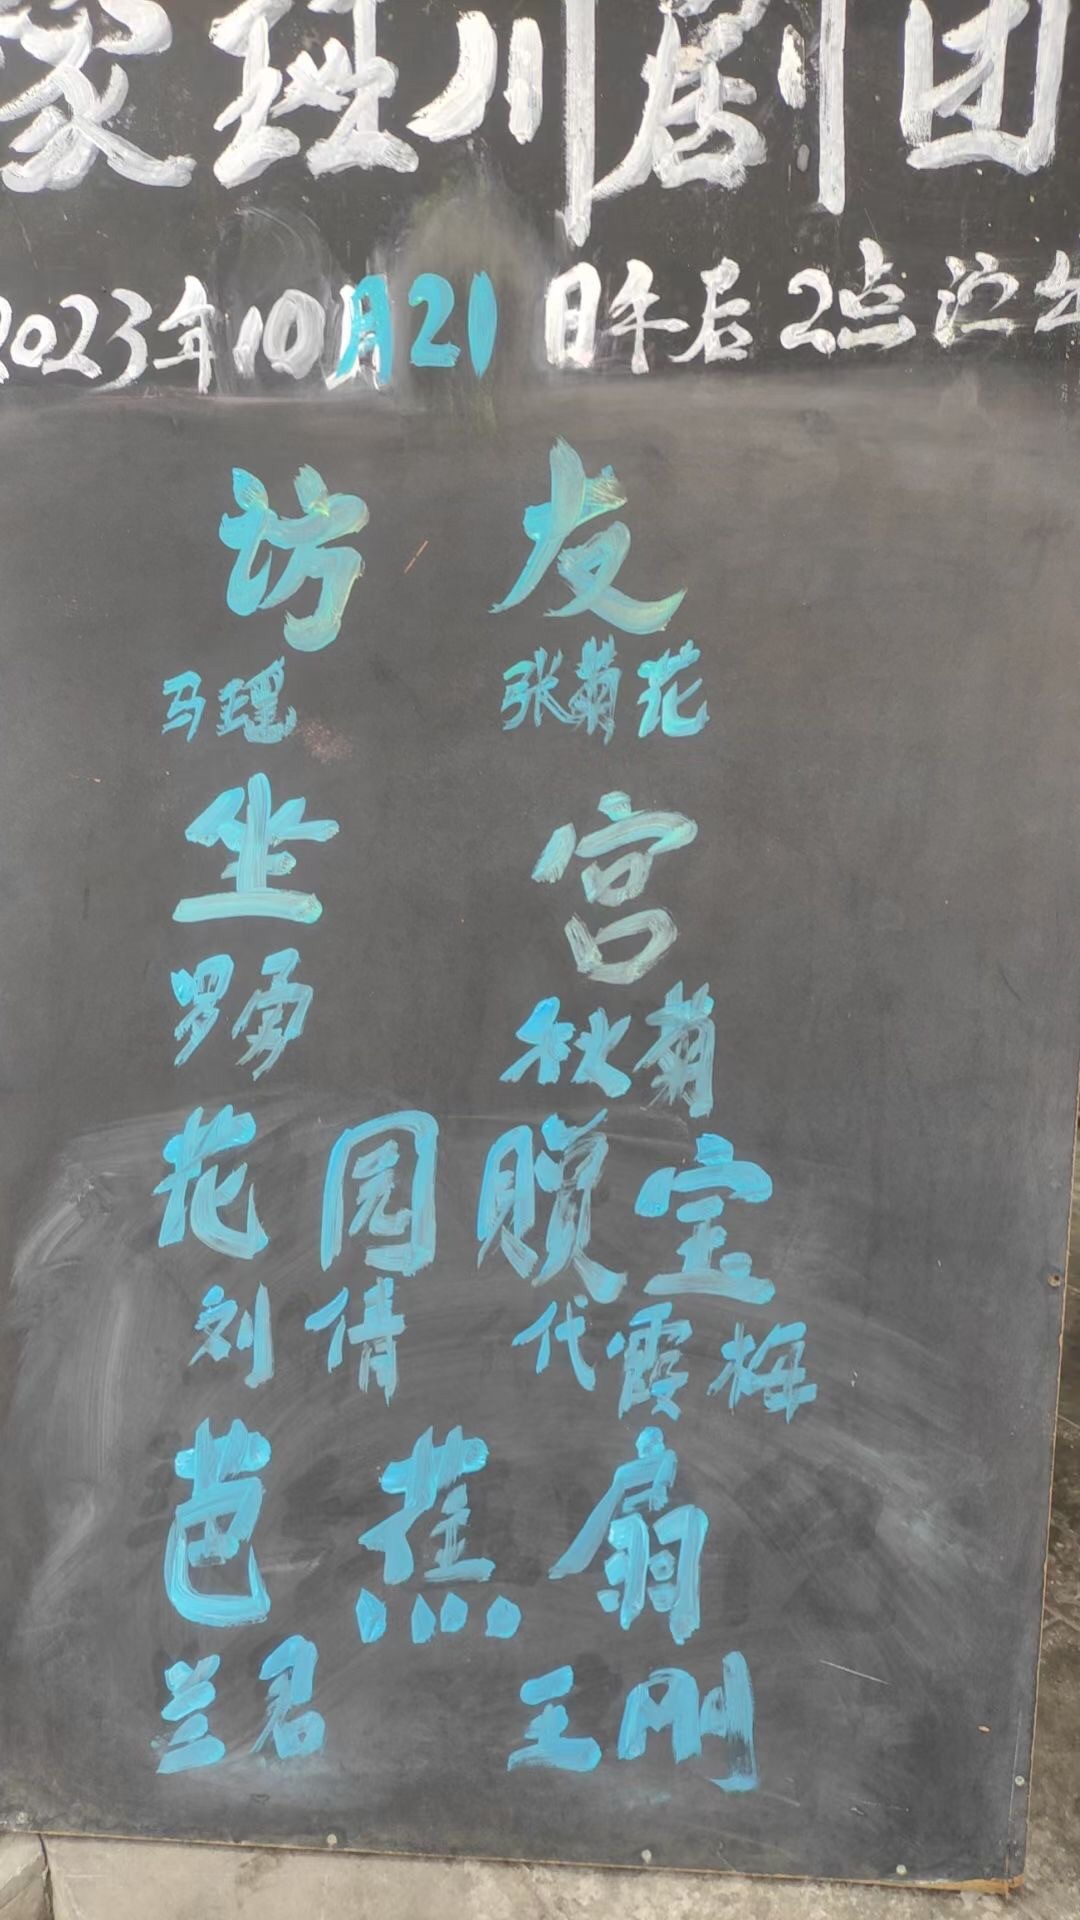 家班川剧团
2023年10月21日午后2点
访友
马瑶 张菊花
坐宫
罗勇 秋菊
花园赎宝
刘倩 代霞梅
芭蕉扇
兰君 王刚